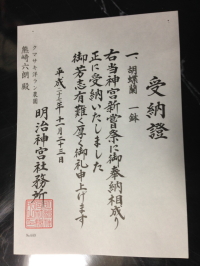 受納證
一、胡蝶蘭 一鉢
右当神宮新嘗祭に御奉納相成り
正に受納いたしました
御芳志有難く厚く御礼申上げます
平成二十六年十一月二十三日
明治神宮社務所
クマサキ洋ラン農園
熊崎六朗殿